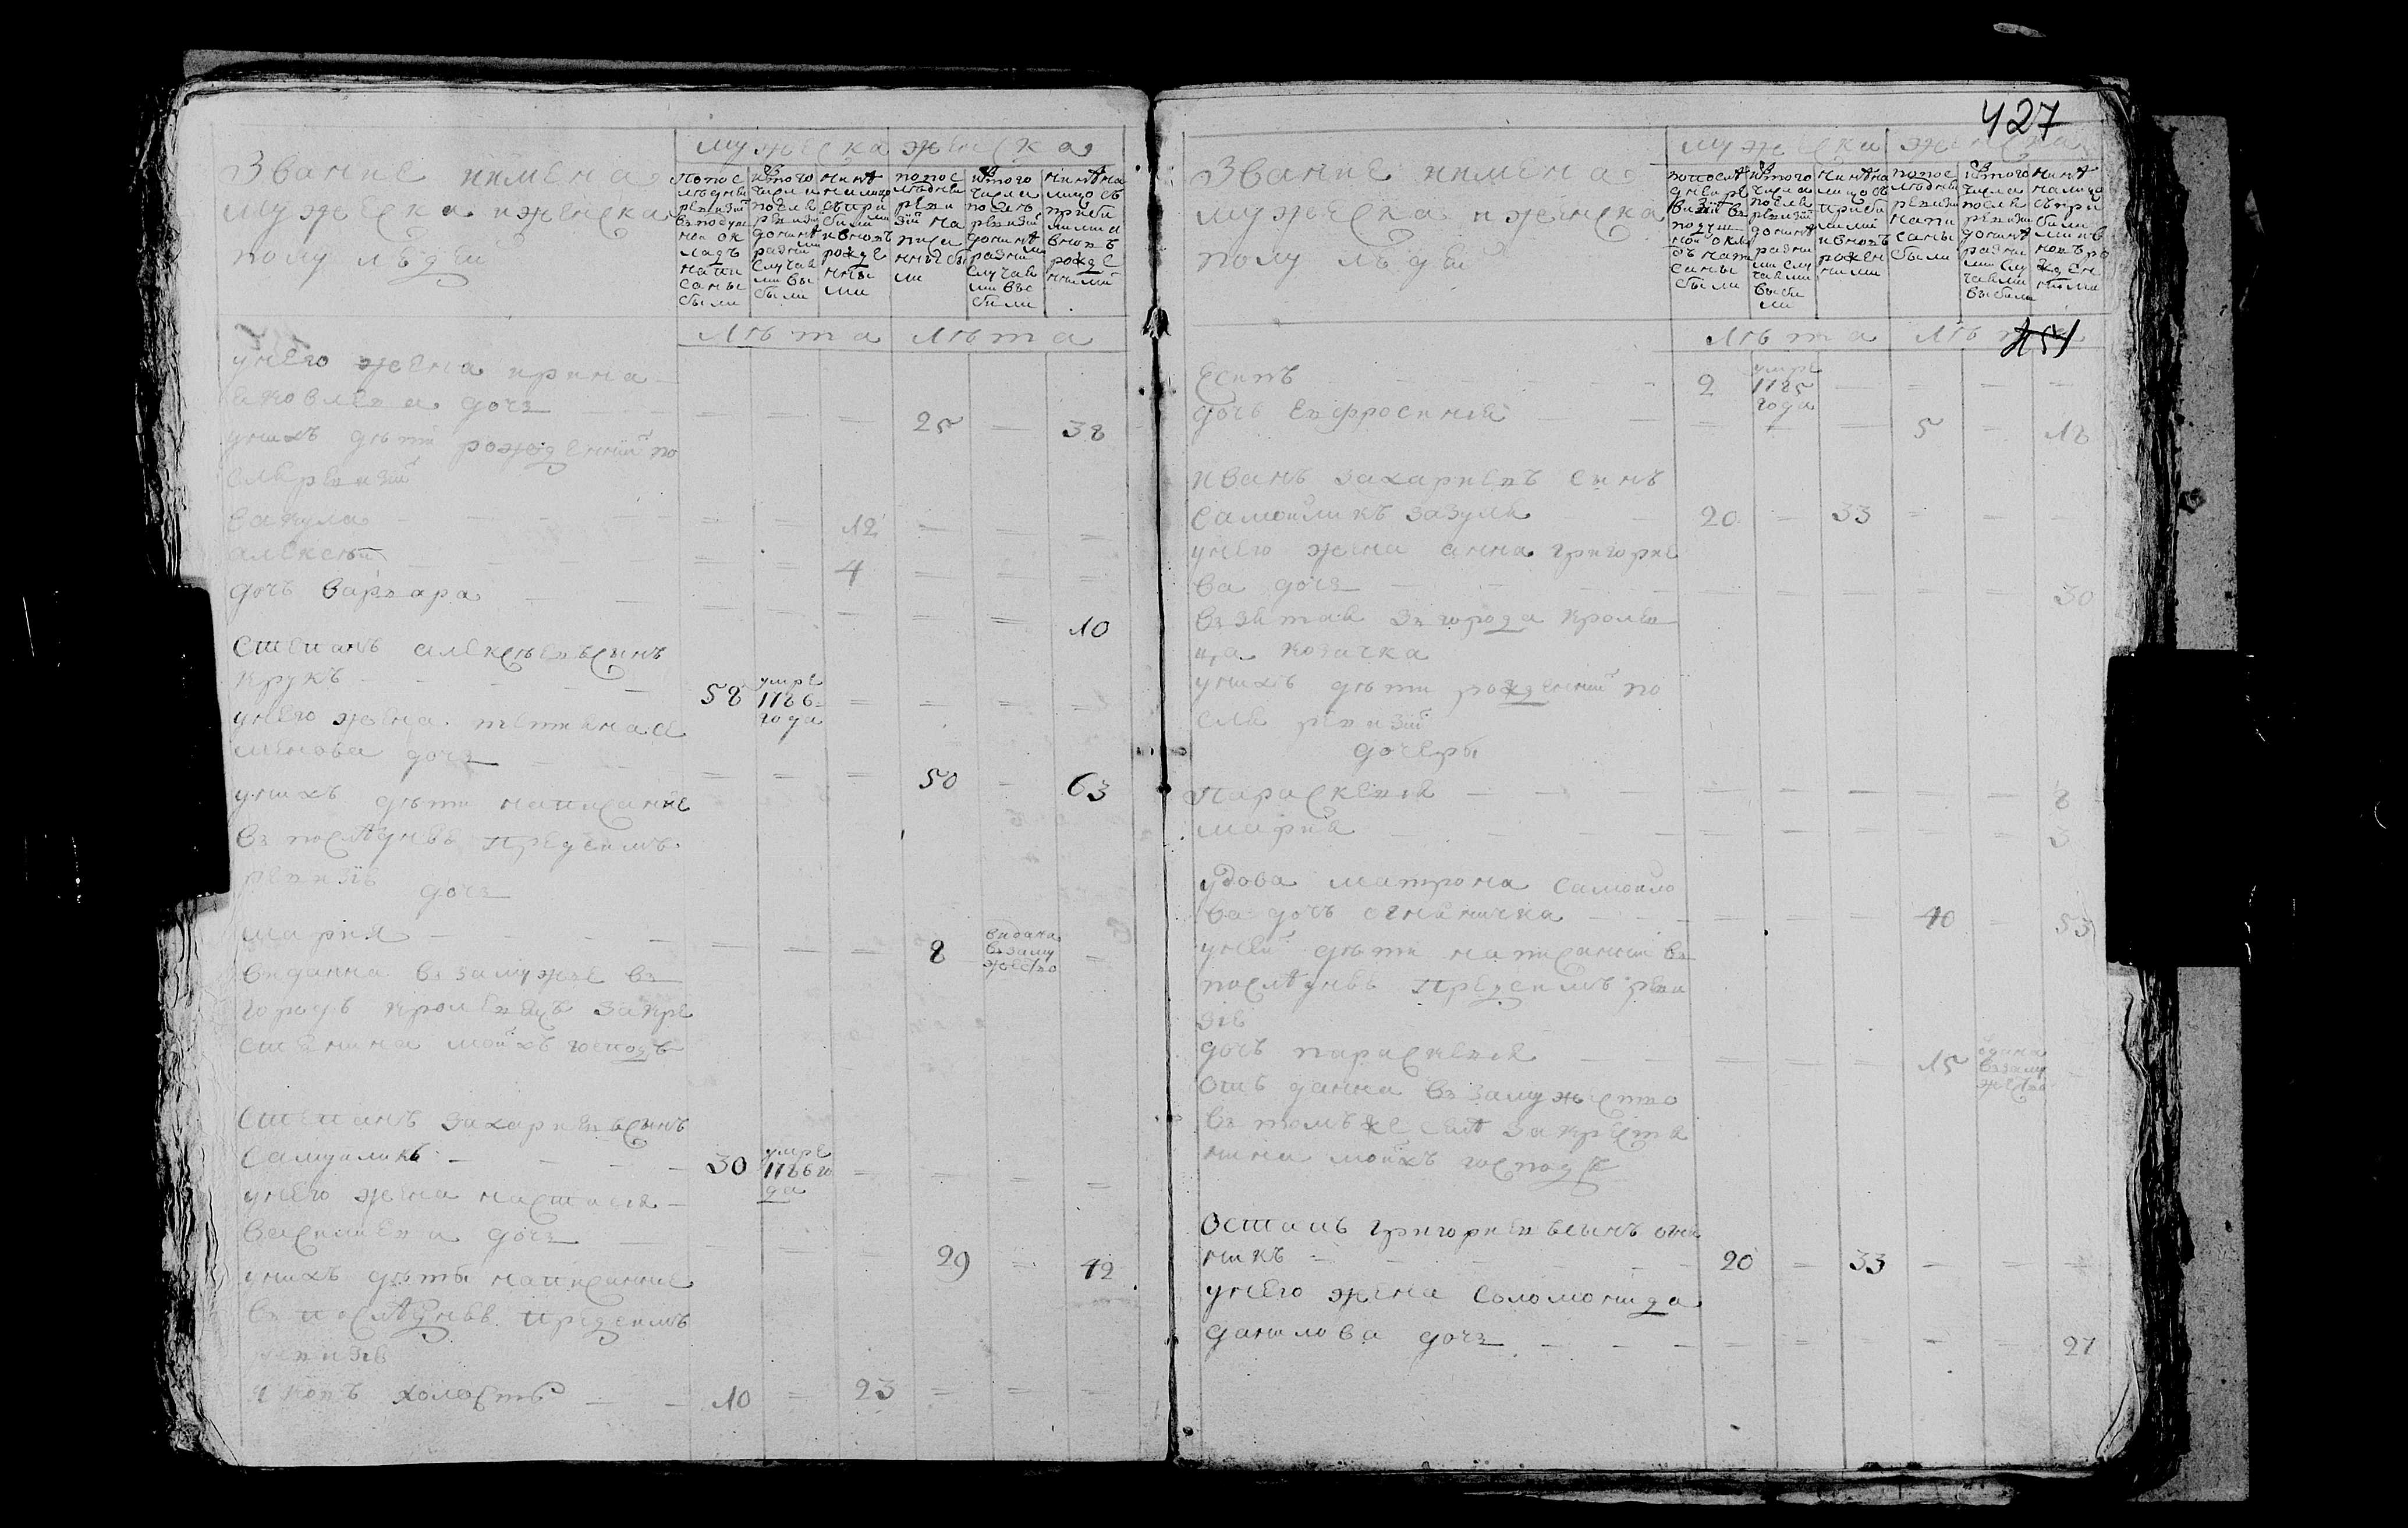 Звание имена
мужеска и женска
полу людей
мужеска женска
По пос
ледней
ревизии
в подуш
ной ок
лад
напи
саны
были
Из того
числа
после
ревизии
до ныне
разни
ми
случая
ми вы
были
Ныне
на лицо
с при
былы
ми
и вновь
рожде
нны
ми
по пос
ледней
реви
зии на
писа
ны бы
ли
Из того
числа
после
ревизии
до ныне
разни
ми
случая
ми вы
были
Ныне на
лицо с
приби
лими и
вновь
рожде
нними
Лета Лета
у него жена ирина
яковлева дочь = = — 25 — 38
у них дети рожденнии по
сле ревизии
вакула = = 12 — — =
алексей = = 4 — — =
дочь варвара = = = = = 10
степань алексеевь сынь
крукь 58 умре 1786 года = = = =
у него жена тетяна се
менова дочь = = — 50 — 63
у них дети написание
в последней пред сим
ревизии дочь
мария — — — 8 видана в замужество —
виданна в замуже в
город кролевец за кре
стянина моих господ
степань захариевь сынь
самуиликь 30 умре 1786 го да = — — =
у него жена настасия
василиева дочь — — — 29 — 42
у них дети написание
в последней пред сим
ревизии
яковь холость 10 — 23 = = —
427
Звание имена
мужеска и женска
полу людей
мужеска женска
по после
дней ре
визии в
подуш
ной окла
дь напи
саны
были
Из того
числа
после
ревизии
до ныне
разни
ми слу
чаями
выби
ли
Ныне на
лицо с
приби
лими
и вновь
рожен
ними
по пос
ледней
ревизии
напи
саны
были
Из того
числа
после
ревизии
до ныне
разни
ми слу
чаями
выбили
Ныне
на лицо
с при
били
ми и в
новь ро
жден
ными
Лета Лета
451
Есипь 2 умре 1785 года — = — —
дочь Евфросиния = = — 5 — 18
иванъ захариевъ синъ
самойликъ зазуля 20 — 33 = — —
у него жена анна григорие
ва дочь — — — — — 30
взятая з города кролев
ца козачка
у нихъ дети рожденнии по
сле ревизии
дочеры
параскевия — — — — — 8
мария — — — = = 3
удова матрона самойло
ва дочь огненичка — — — 40 — 53
у ней дети написаннии в
последней пред сим реви
зие
дочь параскевия — — — 15 вдана в замужество —
отъ данна в замужество
в томъ же селе за крестя
нина моихъ господ
Остапъ григориевъ сынъ огне
никъ 20 — 33 — — —
у него жена соломонида
данилова дочь = = = — — 27